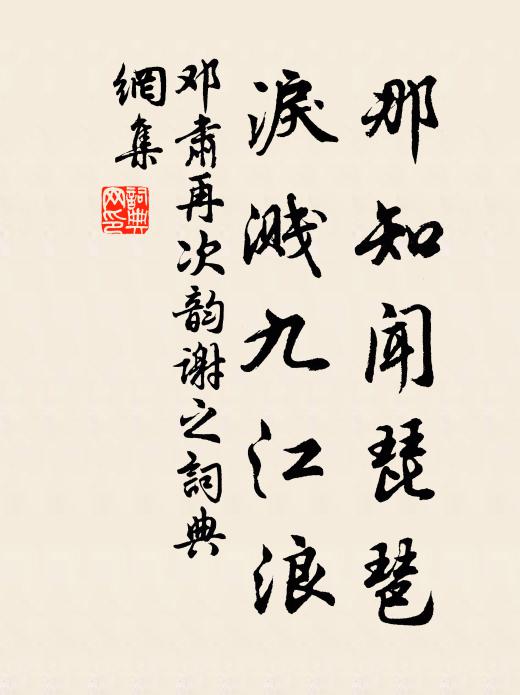 那知闻琵琶
淚溅九江浪
邓肃再次韵谢之词典
網集
詞典
网印